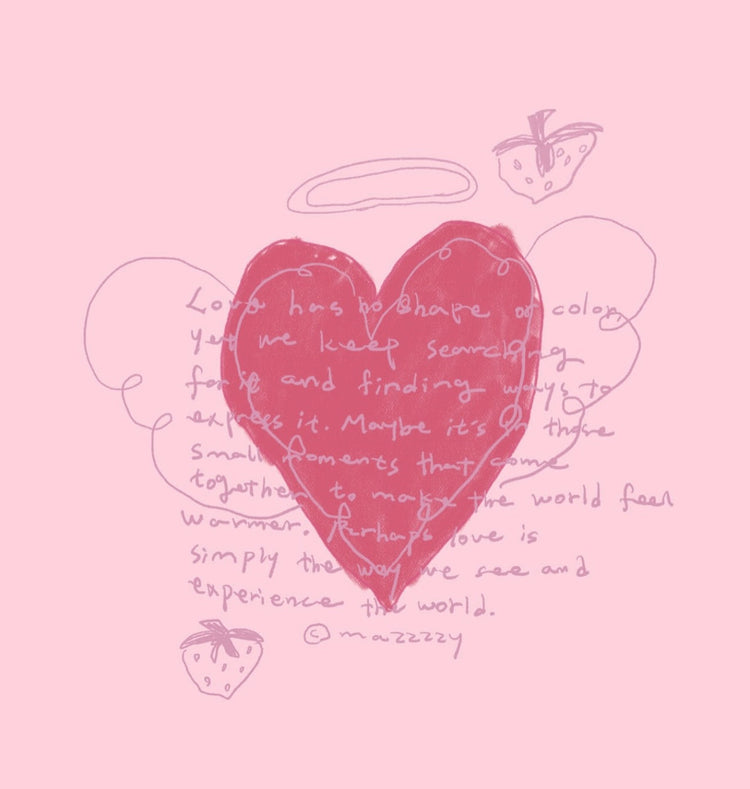 Love has no shape or color,
yet we keep searching
for it and finding ways to
express it. Maybe it's in those
small moments that come
together to make the world feel
warmer. Perhaps love is
simply the way we see and
experience the world.
© mazzzzy